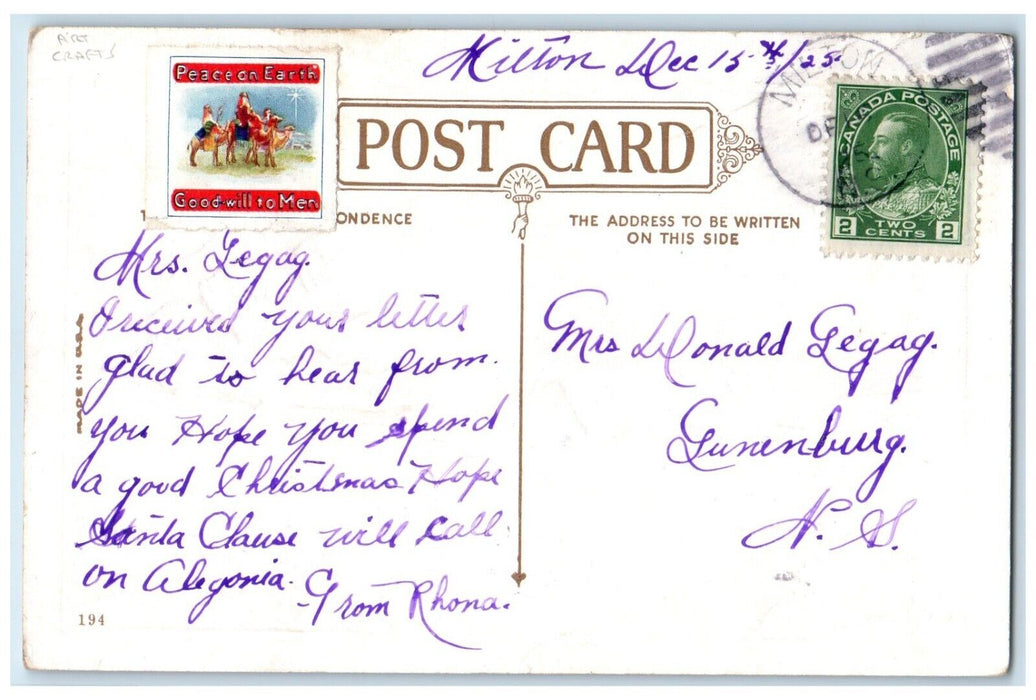 ART
CRAFTS
Peace on Earth
Good-will to Men
Milton Dec 15th/25
MILTON
CANADA POSTAGE
2 TWO CENTS 2
POST CARD
ONDENCE
THE ADDRESS TO BE WRITTEN
ON THIS SIDE
Mrs. Zegag.
I received your letter
glad to hear from.
you Hope you spend
a good Christmas Hope
Santa Clause will call
on Alegonia.
From Rhona.
MADE IN U.S.A.
194
Mrs Donald Zegag.
Lunenburg.
N. S.